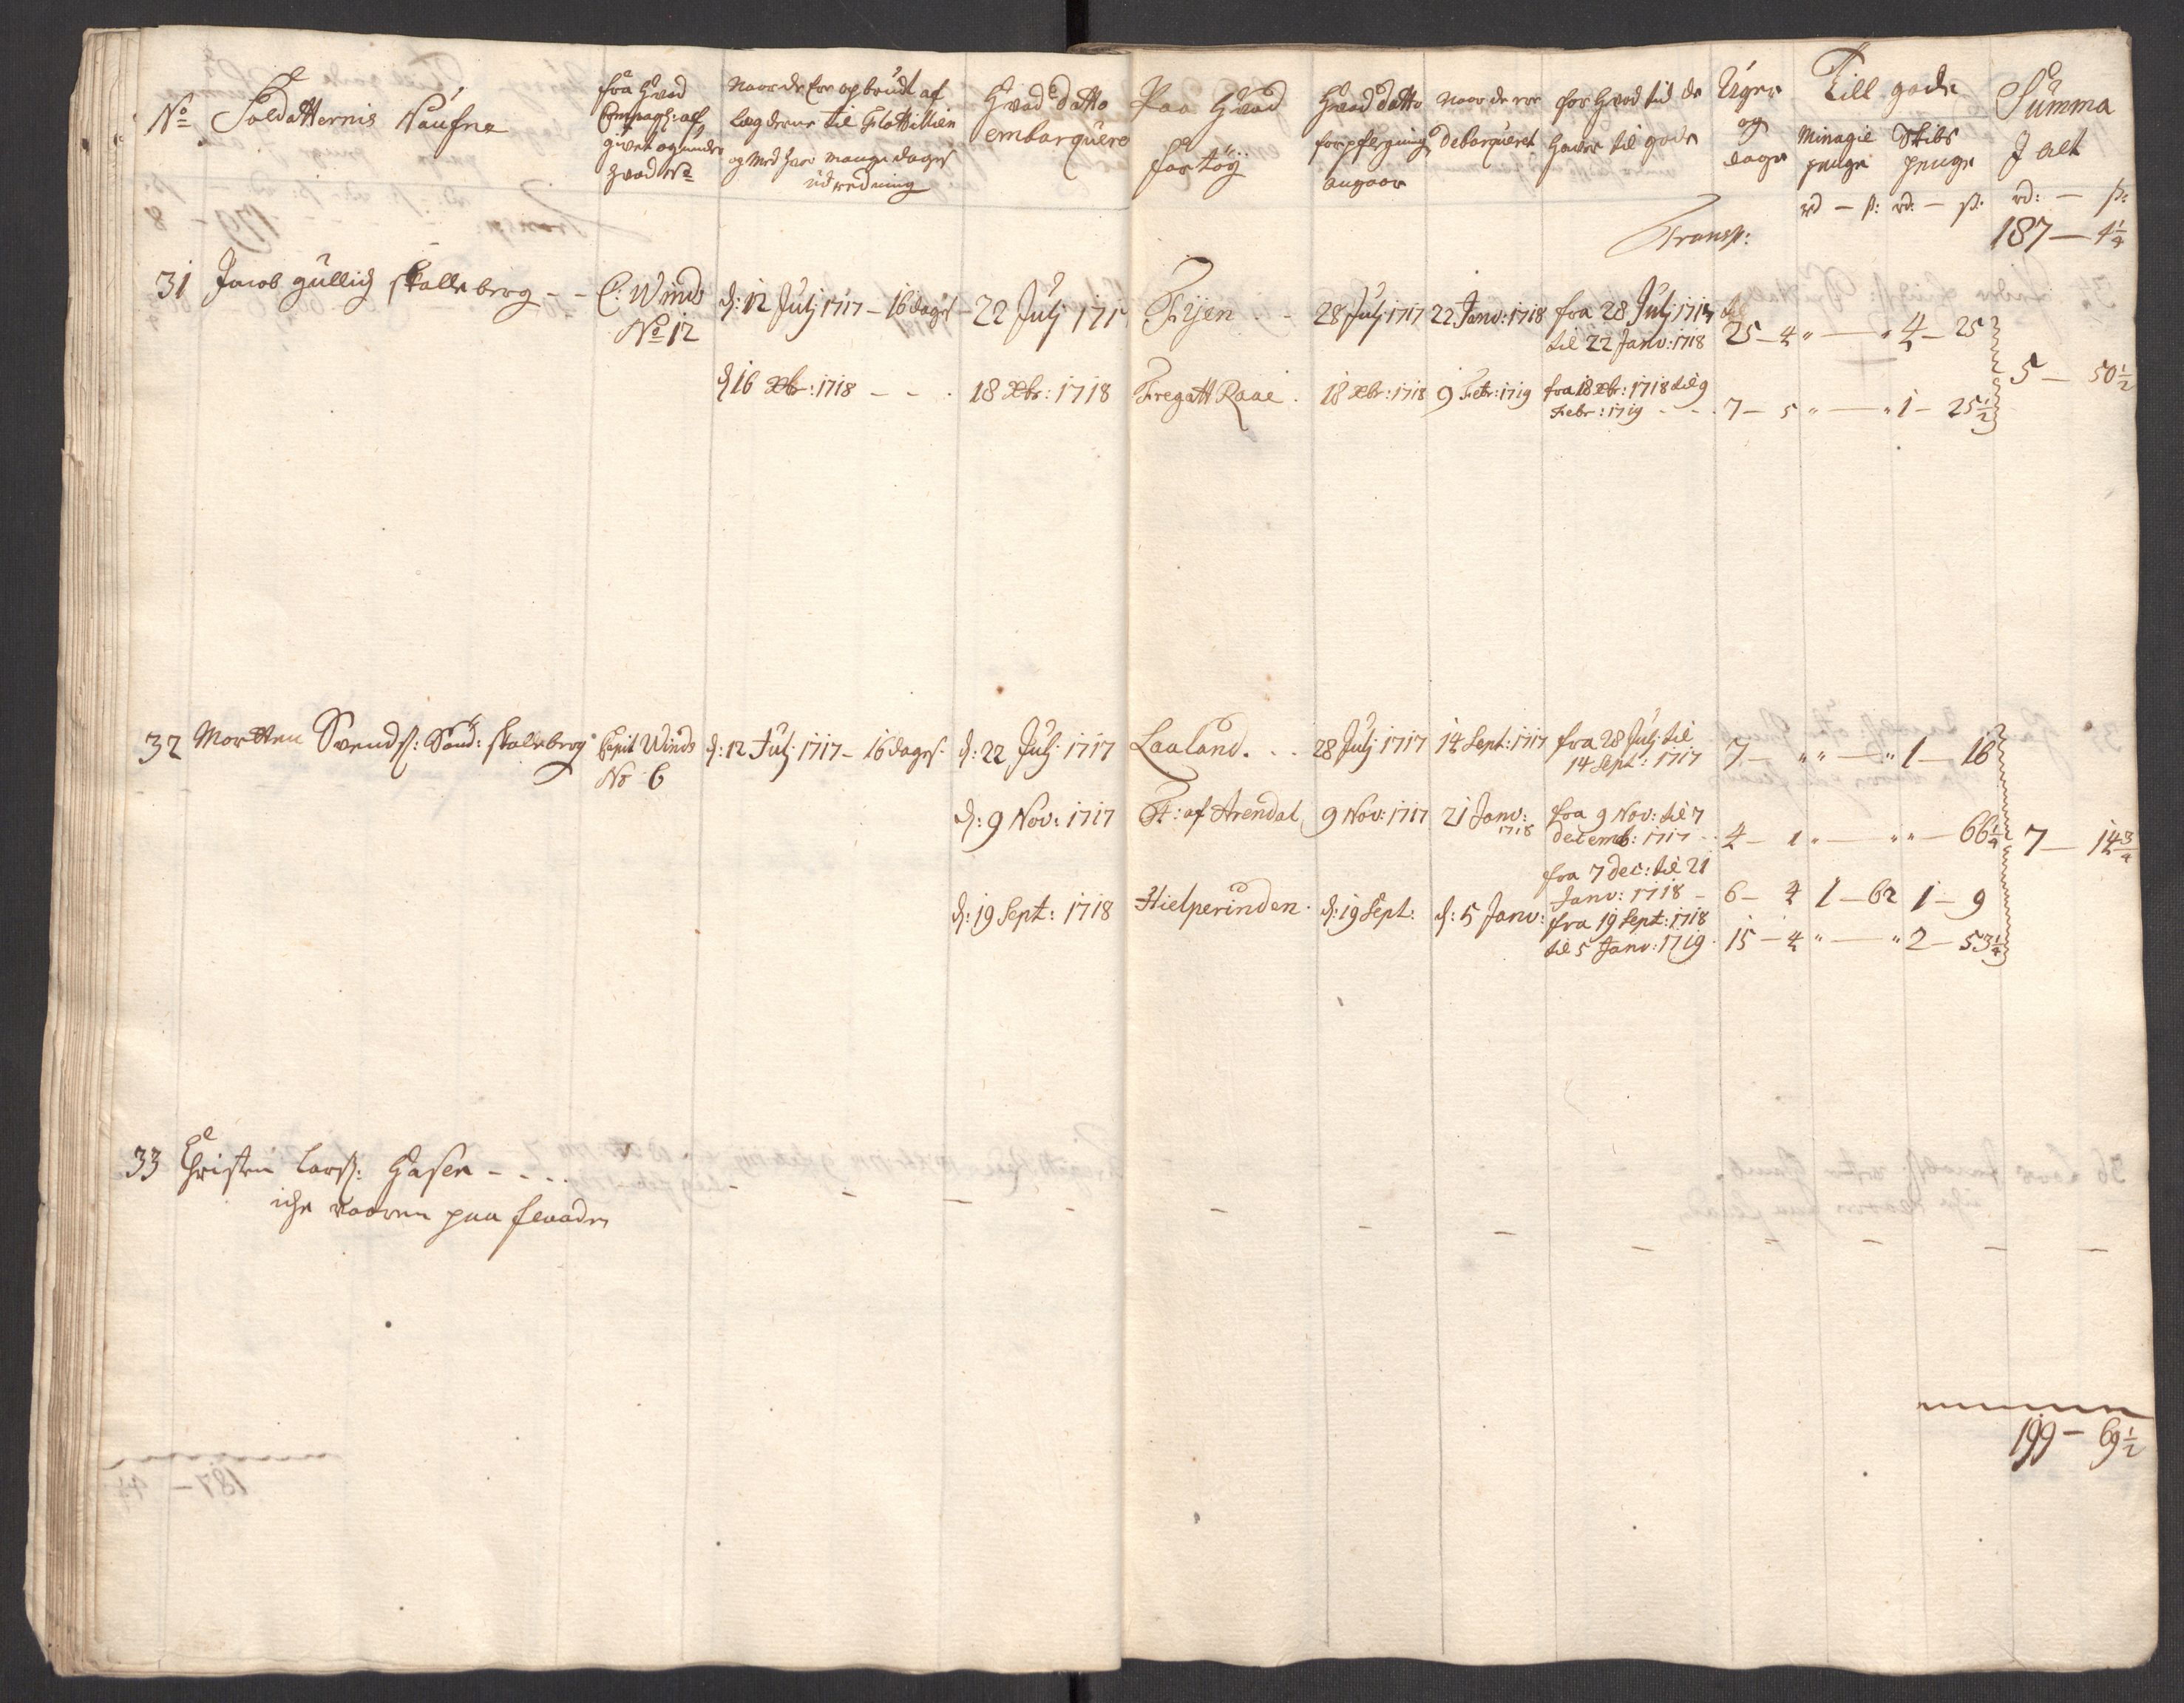 No Soldatternis Naufne
fra hvad
Compagh: alf
givet og under
hvad No
Naar de ere opbrudt af
Lægderne til Flottillien
og med hvor mange dages
udredning
Hvad datto
embarquere
Paa Hvad
fartöÿ
Hvad datto
forpflegning
angaar
Naar de ere
debarqueret
for hvad tid de
haver til gode
Uger
og
dage
Till gode
Minagie
penge
Skibs
penge
rd — s: rd: — s:
Summa
J alt
rd: — s:
Transp: 187 — 4 1/4
31 Jacob gullich skalleberg - - C: Winds d: 12 Julj 1717 - 16 dages - 22 Julj 171 Fÿen . - 28 Julj 1717 22 Janv: 1718 fra 28 Julj 1717
No 12 til 22 Janv: 1718 25 - 4 " — " 4 - 25
d 16 xbr: 1718 - - . 18 xbr: 1718 Fregatt Raae . 18 xbr: 1718 9 Febr: 1719 fra 18 xbr: 1718 til 9
Febr: 1719 - - . 7 - 5 " — " 1 - 25 1/2
5 — 50 1/2
32 Mortten Svends: Sand: skalleberg Capit Winds d: 12 Julj 1717 - 16 dages - d: 22 Julj 1717 Laaland. . . 28 Julj 1717 14 Sept: 1717 fra 28 Julj til
No 6 14 Sept: 1717 7 — " " — " 1 — 16
d: 9 Nov: 1717 Ft: af Arendal 9 Nov: 1717 21 Janv: 1718 fra 9 Nov: til 7
decemb: 1717 - . 4 - 1 " — " " — 66 1/4
7 — 14 3/4
fra 7 dec: til 21
Janv: 1718 - 6 - 4 1 - 62 1 - 9
d: 19 Sept: 1718 Hielperinden . d: 19 Sept: d: 5 Janv: fra 19 Sept: 1718
til 5 Janv: 1719 . 15 - 4 " — " 2 - 53 1/4
33 Christen Lars: Hasen - - . .
iche vaaren paa
199 - 69 1/2